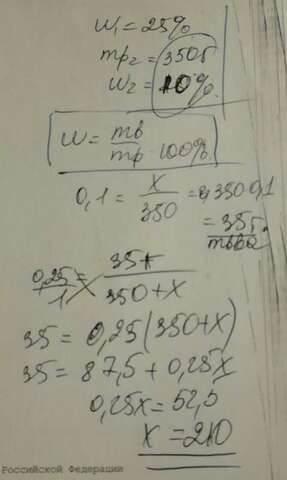 w₁ = 25%
mр₂ = 350г
w₂ = 10%
w = mв/mр · 100%
0,1 = x/350 = 350·0,1
= 35г
mв-ва
0,25/1 = 35+/350+x
35 = 0,25(350+x)
35 = 87,5 + 0,25x
0,25x = 52,5
x = 210
Российской Федерации